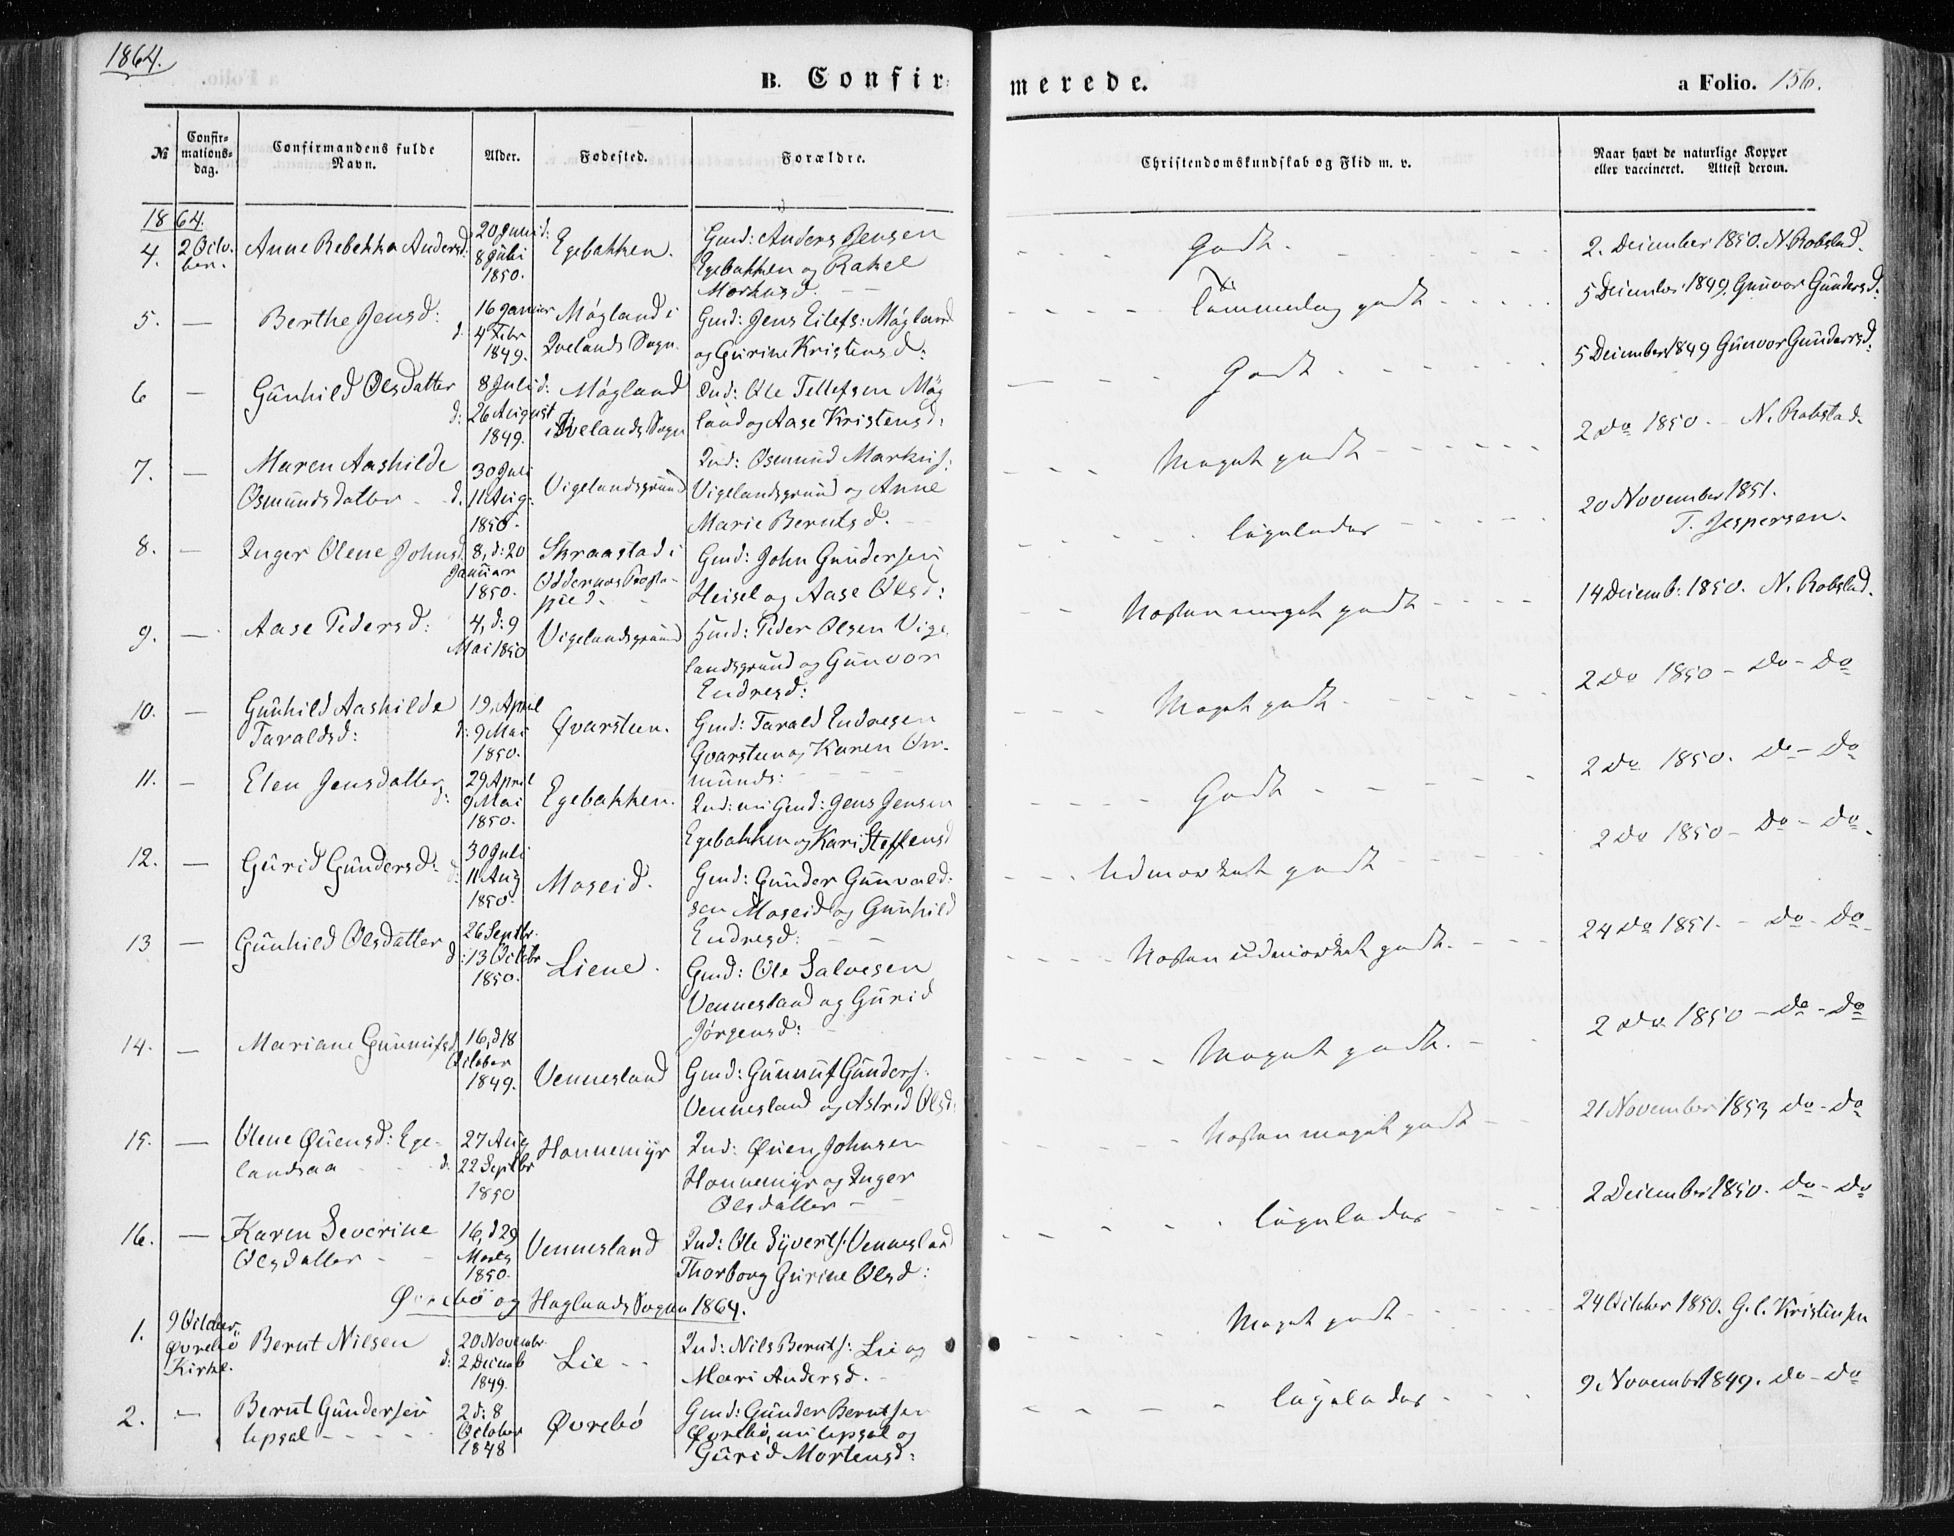 1864.
B. Confir-
merede.
a Folio. 156.
№
Confir-
mations-
dag.
Confirmandens fulde
Navn.
Alder.
Fødested.
Forældre.
Christendomskundskab og Flid m. v.
Naar havt de naturlige Kopper
eller vaccineret. Attest derom.
1864.
4. 2 Octo-
ber.
Anne Rebekka Andersd:
20 Juni d:
8 Juli
1850.
Egebakken.
Gmd: Anders Jensen
Egebakken og Rakel
Markusd.
Godt.
2. December 1850. N. Robstad.
5. —
Berthe Jensd:
16 Januar
d: 4 Febr
1849.
Møgland i
Ivelands Sogn.
Gmd: Jens Eilefs: Møgland
og Gurine Kristensd:
Temmelig godt
5 December 1849. Gunvor Gundersd:
6 —
Gunhild Olsdatter
8 Juli d:
d: 26 August
1849.
Møgland
i Ivelands Sogn
Ind: Ole Tellefsen Møg
land og Aase Kristensd:
Godt
5 December 1849 Gunvor Gundersd:
7. —
Maren Aashilde
Osmundsdatter
30 Juli
d. 11 Aug.
1850.
Vigelandsgrund
Ind: Osmund Markus:
Vigelandsgrund og Anne
Marie Berntsd.
Meget godt
2 Do 1850. N. Robstad.
8. —
Inger Olene Johnsd
8, d: 20
Januar
1850.
Skraastad i
Oddernes Præste-
gjeld.
Gmd: John Gundersen
Heisel og Aase Olsd:
ligeledes
20 November 1851.
T. Jespersen.
9. —
Aase Pedersd:
4, d: 9
Mai 1850
Vigelandsgrund
Hmd: Peder Olsen Vige
landsgrund og Gunvor
Endresd:
Næsten meget godt
14 Decemb: 1850. N. Robstad.
10. —
Gunhild Aashilde
Taraldsd:
19. April
d: 9 Mai
1850.
Qvarsteen.
Gmd: Tarald Endresen
Qvarsteen og Karen Os-
munds:
Meget godt
2 Do 1850 – Do – Do
11. —
Elen Jensdatter
29 April
d: 9 Mai
1850.
Egebakken.
Ind: nu Gmd: Jens Jensen
Egebakken og Kari Steffensd
Godt
2 Do 1850. Do – Do
12. —
Gurid Gundersd:
30 Juli
d: 11 Aug
1850.
Moseid.
Gmd: Gunder Gunvald-
sen Moseid og Gunhild
Endresd:
Udmærket godt
2 Do 1850 – Do – Do
13 —
Gunhild Olsdatter
26 Septbr.
d: 13 Octbr
1850.
Liene.
Gmd: Ole Salvesen
Vennesland og Gurid
Jørgensd:
Næsten udmærket godt.
24 Do 1851. – Do – Do
14. —
Mariane Gunnufsd
16, d 18
October
1849.
Vennesland
Gmd: Gunnuf Gunders:
Vennesland og Astrid Olsd:
Meget godt.
2 Do 1850 – Do – Do
15. —
Olene Øuensd: Ege-
landsaa
27 Aug
d. 22 Septbr
1850
Honnemyr
Ind: Øuen Johnsen
Honnemyr og Inger
Olsdatter
Næsten meget godt
21 November 1853 Do – Do
16. —
Karen Severine
Olsdatter
16, d 29
Marts
1850.
Vennesland
Ind: Ole Syverts: Vennesland
Thorborg Gurine Olsd:
ligeledes
2 December 1850. Do – Do
Øvrebø og Hæglands Sogne 1864.
1. 9 October
Øvrebø
Kirke.
Bernt Nilsen
20 Novembr
d: 2 Decemb
1849.
Lie
Ind: Nils Bernts: Lie og
Mari Andersd.
Meget godt
24 October 1850. G. C. Kristensen
2. —
Bernt Gundersen
Upsal
2 d: 8
October
1848
Øvrebø
Gmd: Gunder Berntsen
Øvrebø, nu Upsal og
Gurid Mortensd:
ligeledes
9 November 1849. Do – Do